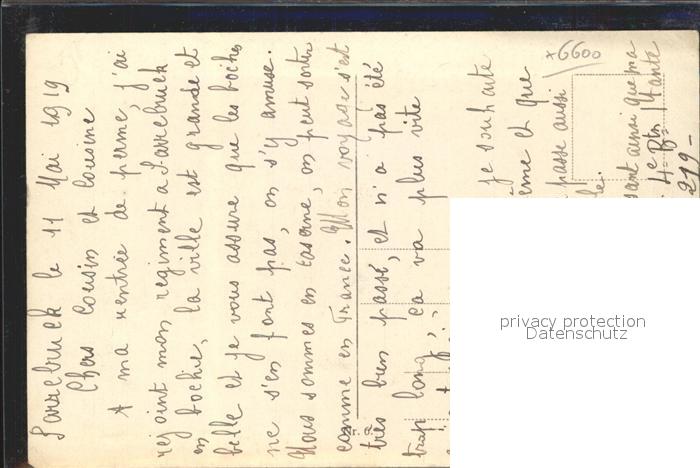 Sarrebruck le 11 Mai 1919
Chers Cousin et Cousine
A ma rentrée de perme, j'ai
rejoint mon régiment a Sarrebruck
en bochie, la ville est grande et
belle et je vous assure que les boches
ne s'en font pas, on s'y amuse.
Nous sommes en caserne, on peut sortir
comme en France. Mon voyage s'est
très bien passé, et n'a pas été
trop long, ça va plus vite
je souhaite
et que
passe aussi
ainsi que ma
tante
4e Btn
219-
x6600
privacy protection
Datenschutz